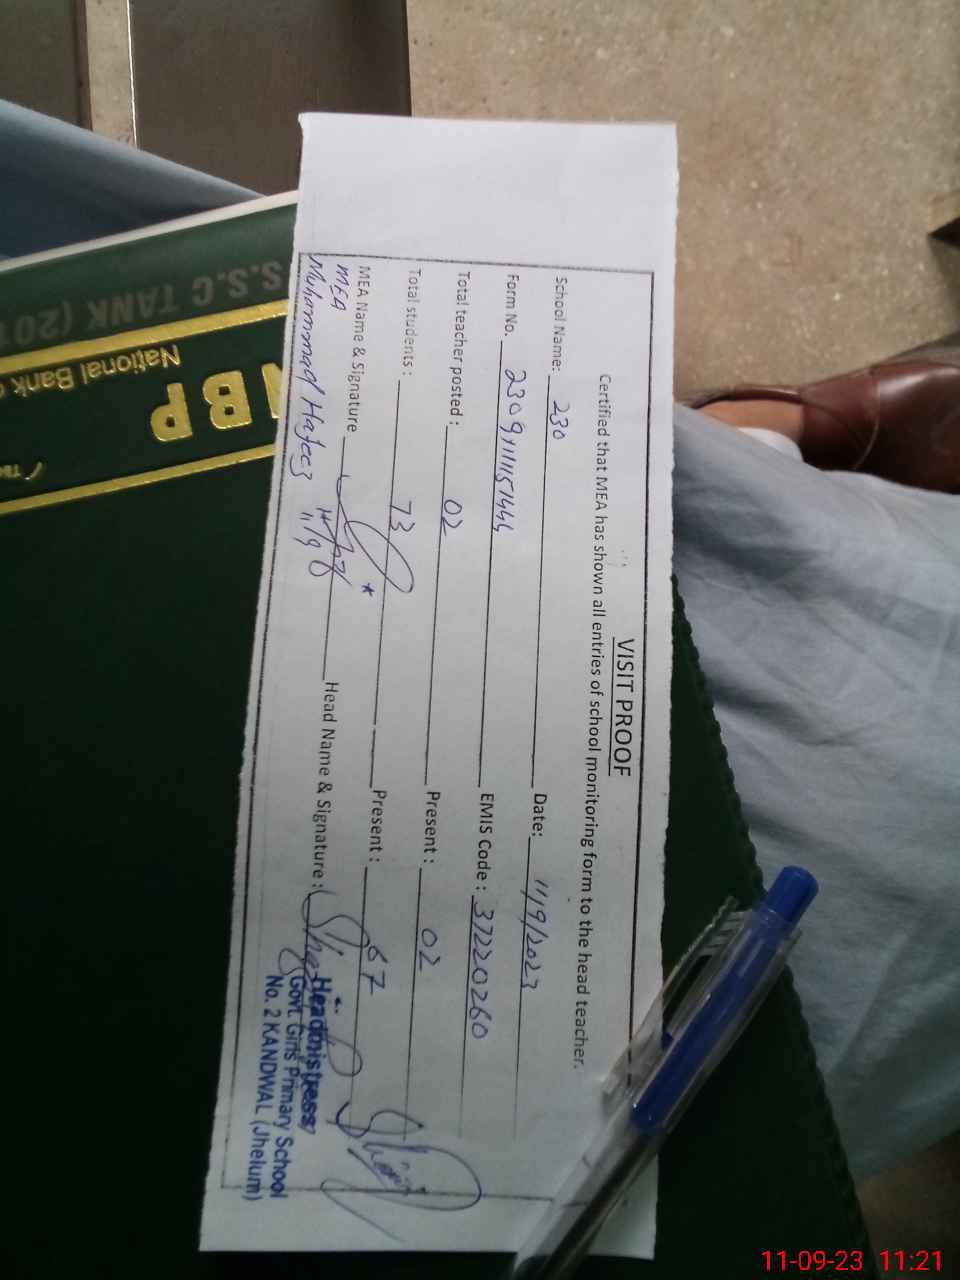 VISIT PROOF
Certified that MEA has shown all entries of school monitoring form to the head teacher.
School Name: 230 Date: 11/9/2023
Form No. EMIS Code : 37220260
Total teacher posted : 02 Present : 02
Total students : 73 Present : 67
MEA Name & Signature Head Name & Signature :
MEA
Muhammad Hafeez 11/9
Headmistress
Govt. Girls Primary School
No. 2 KANDWAL (Jhelum)
S.S.C TANK (201
National Bank
NBP
11-09-23 11:21